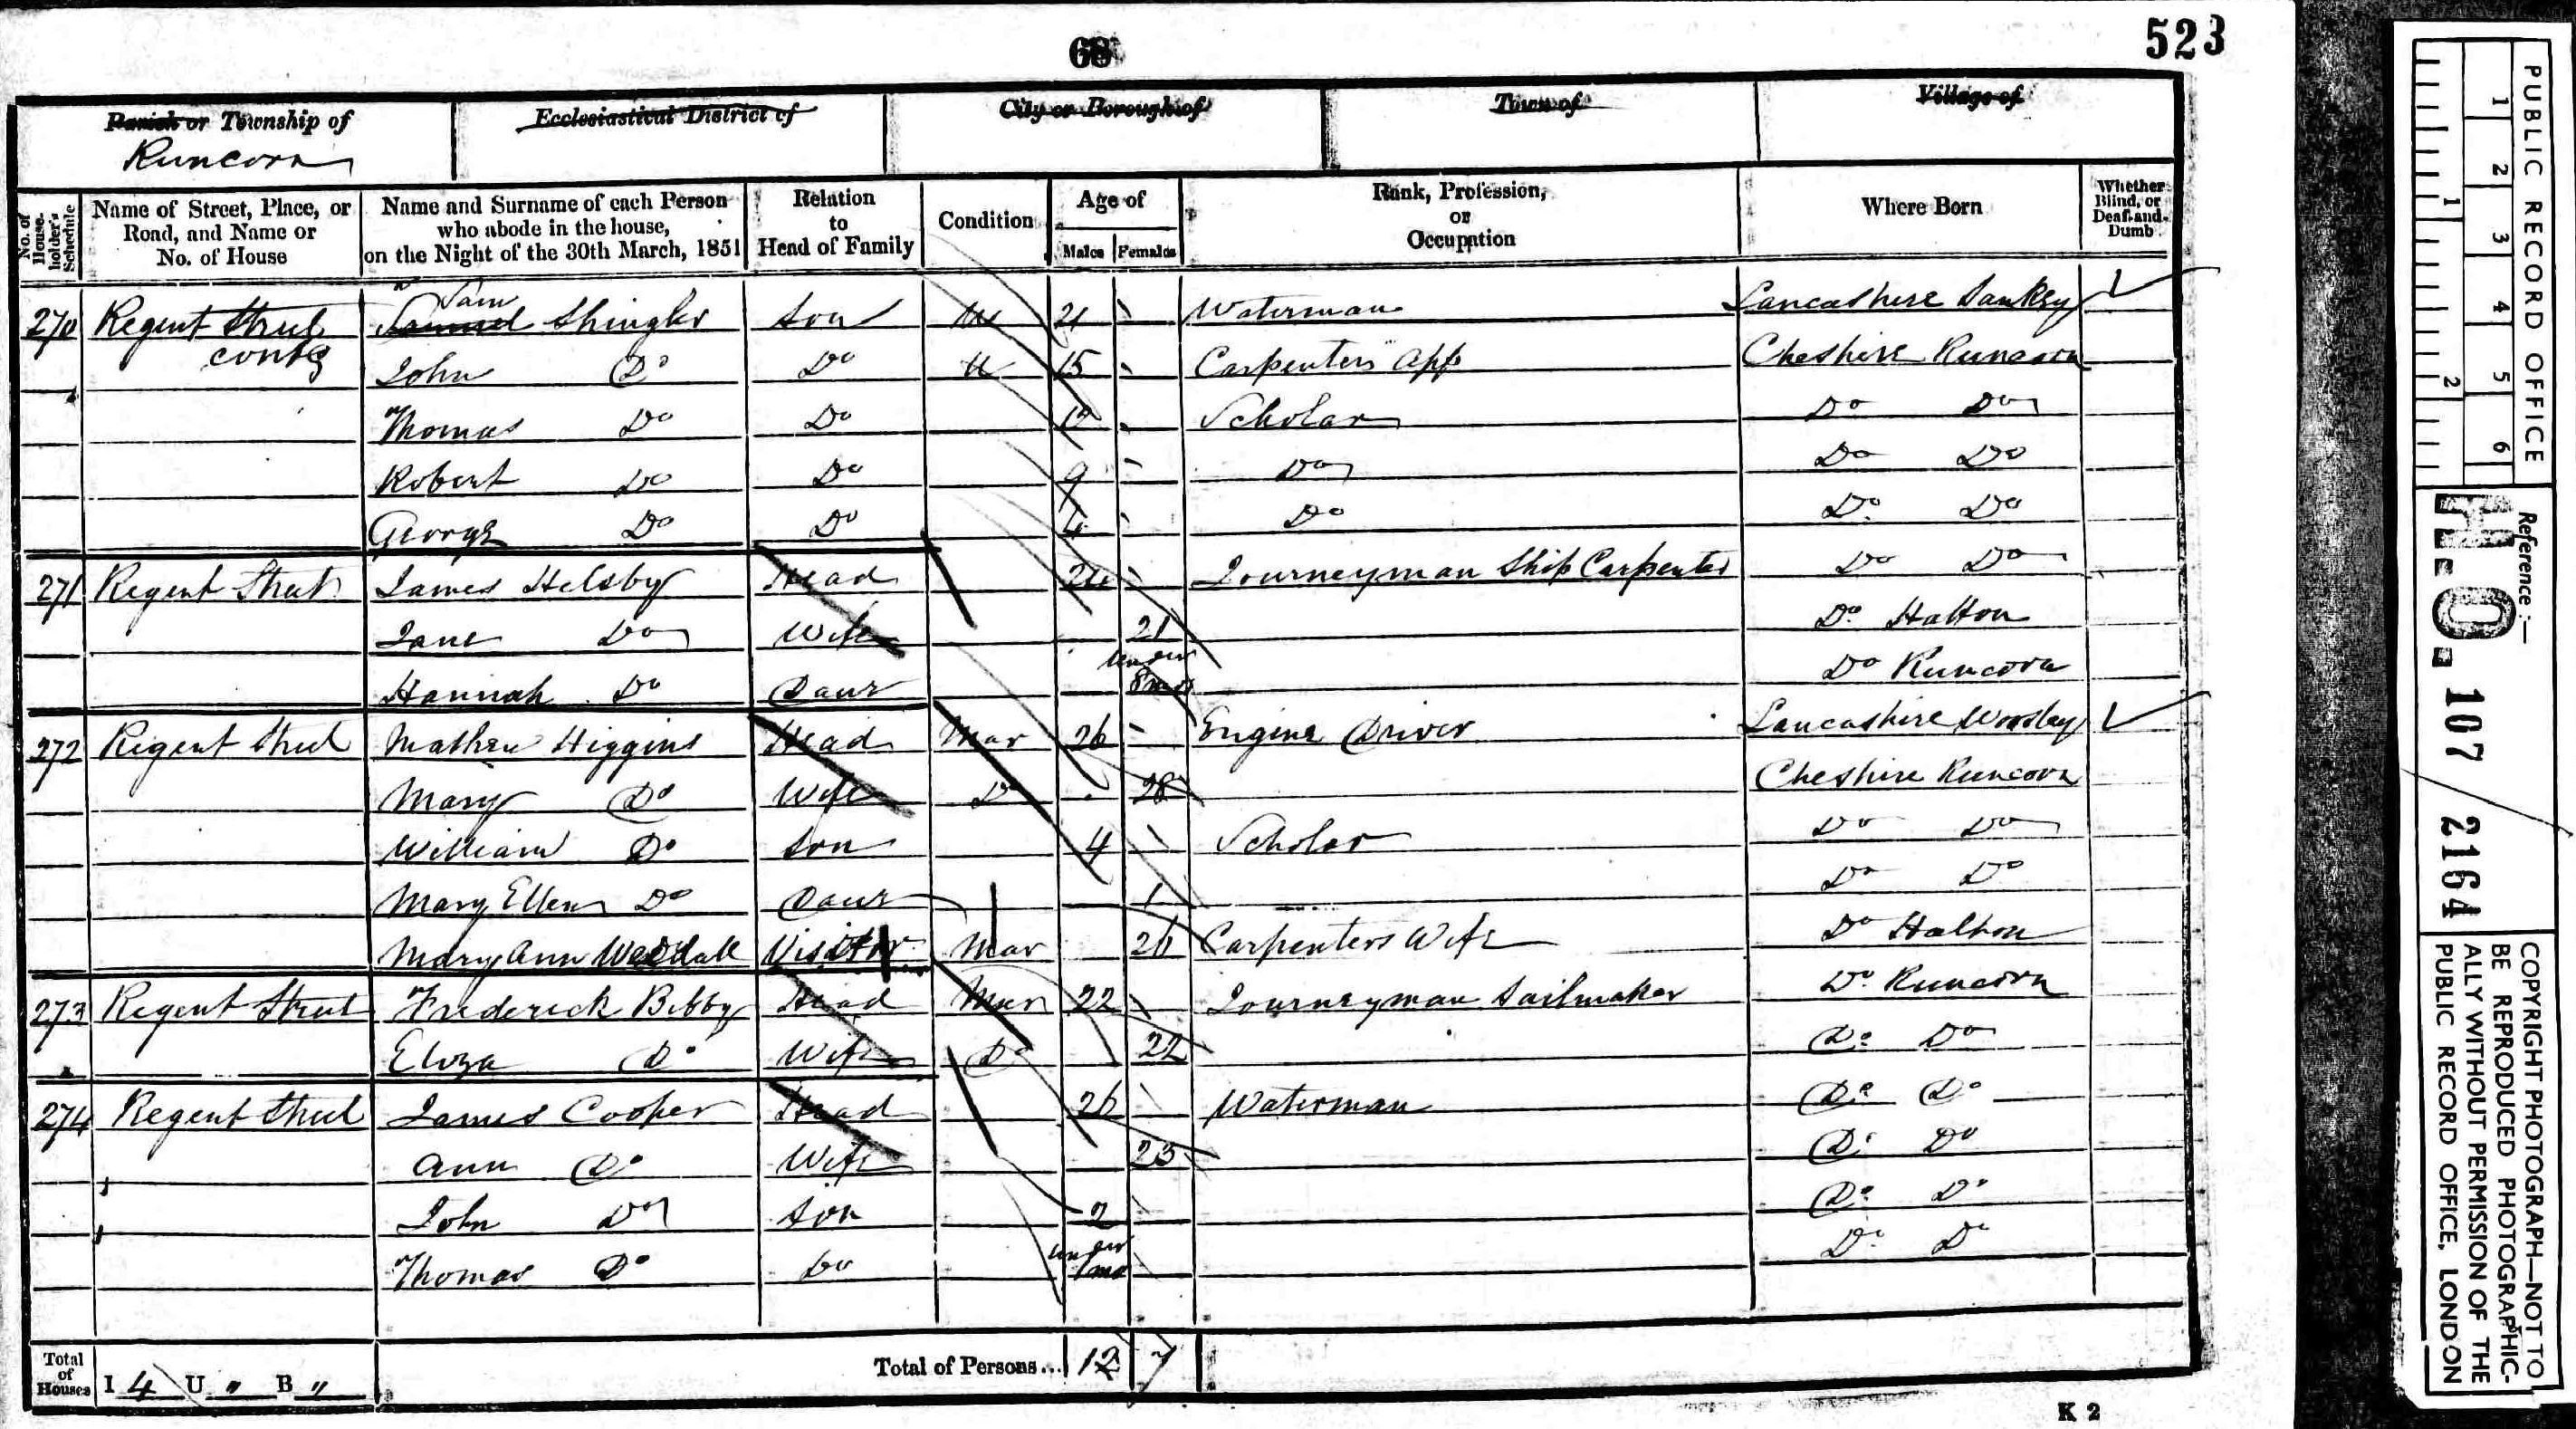 68
523
Parish or Township of
Runcorn
Ecclesiastical District of
City or Borough of
Town of
Village of
No. of House-holder's Schedule
Name of Street, Place, or Road, and Name or No. of House
Name and Surname of each Person who abode in the house, on the Night of the 30th March, 1851
Relation to Head of Family
Condition
Age of
Males Females
Rank, Profession, or Occupation
Where Born
Whether Blind, or Deaf-and-Dumb
270 Regent Street Sam Samuel Shingler Son U 21 Waterman Lancashire Sankey
contd John Do Do U 15 Carpenters app Cheshire Runcorn
Thomas Do Do 12 Scholar Do Do
Robert Do Do 9 Do Do Do
George Do Do 6 Do Do Do
271 Regent Street James Helsby Head 24 Journeyman Ship Carpenter Do Do
Jane Do Wife 21 Do Halton
Hannah Do Daur under 8 mo Do Runcorn
272 Regent Street Mathew Higgins Head Mar 26 Engine Driver Lancashire Worsley
Mary Do Wife Do 28 Cheshire Runcorn
William Do Son 4 Scholar Do Do
Mary Ellen Do Daur 1 Do Do
Mary Ann Weedall Visitor Mar 26 Carpenters Wife Do Halton
273 Regent Street Frederick Bibby Head Mar 22 Journeyman Sailmaker Do Runcorn
Eliza Do Wife Do 22 Do Do
274 Regent Street James Cooper Head 26 Waterman Do Do
Ann Do Wife 23 Do Do
John Do Son 2 Do Do
Thomas Do Do under 1 mo Do Do
Total of Houses I 4 U " B " Total of Persons... 12 7
K 2
PUBLIC RECORD OFFICE
1 2 3 4 5 6
1 2
Reference:—
H.O. 107 / 2164
COPYRIGHT PHOTOGRAPH—NOT TO
BE REPRODUCED PHOTOGRAPHIC-
ALLY WITHOUT PERMISSION OF THE
PUBLIC RECORD OFFICE, LONDON